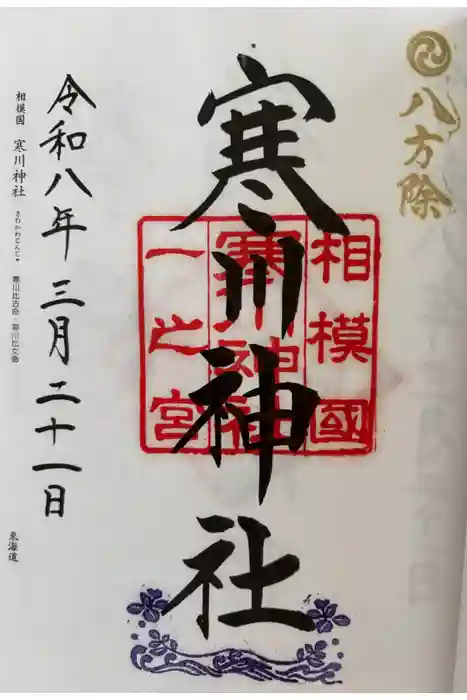 八方除
相模國
寒川神社
一之宮
寒川神社
令和八年 三月 二十一日
相模国 寒川神社 さむかわじんじゃ 寒川比古命・寒川比女命
東海道